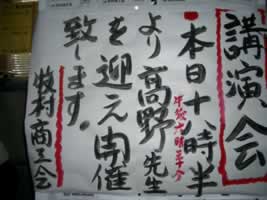 講演会
本日十八時半
午後六時三十分
より高野先生
を迎え開催
致します。
牧村商工会